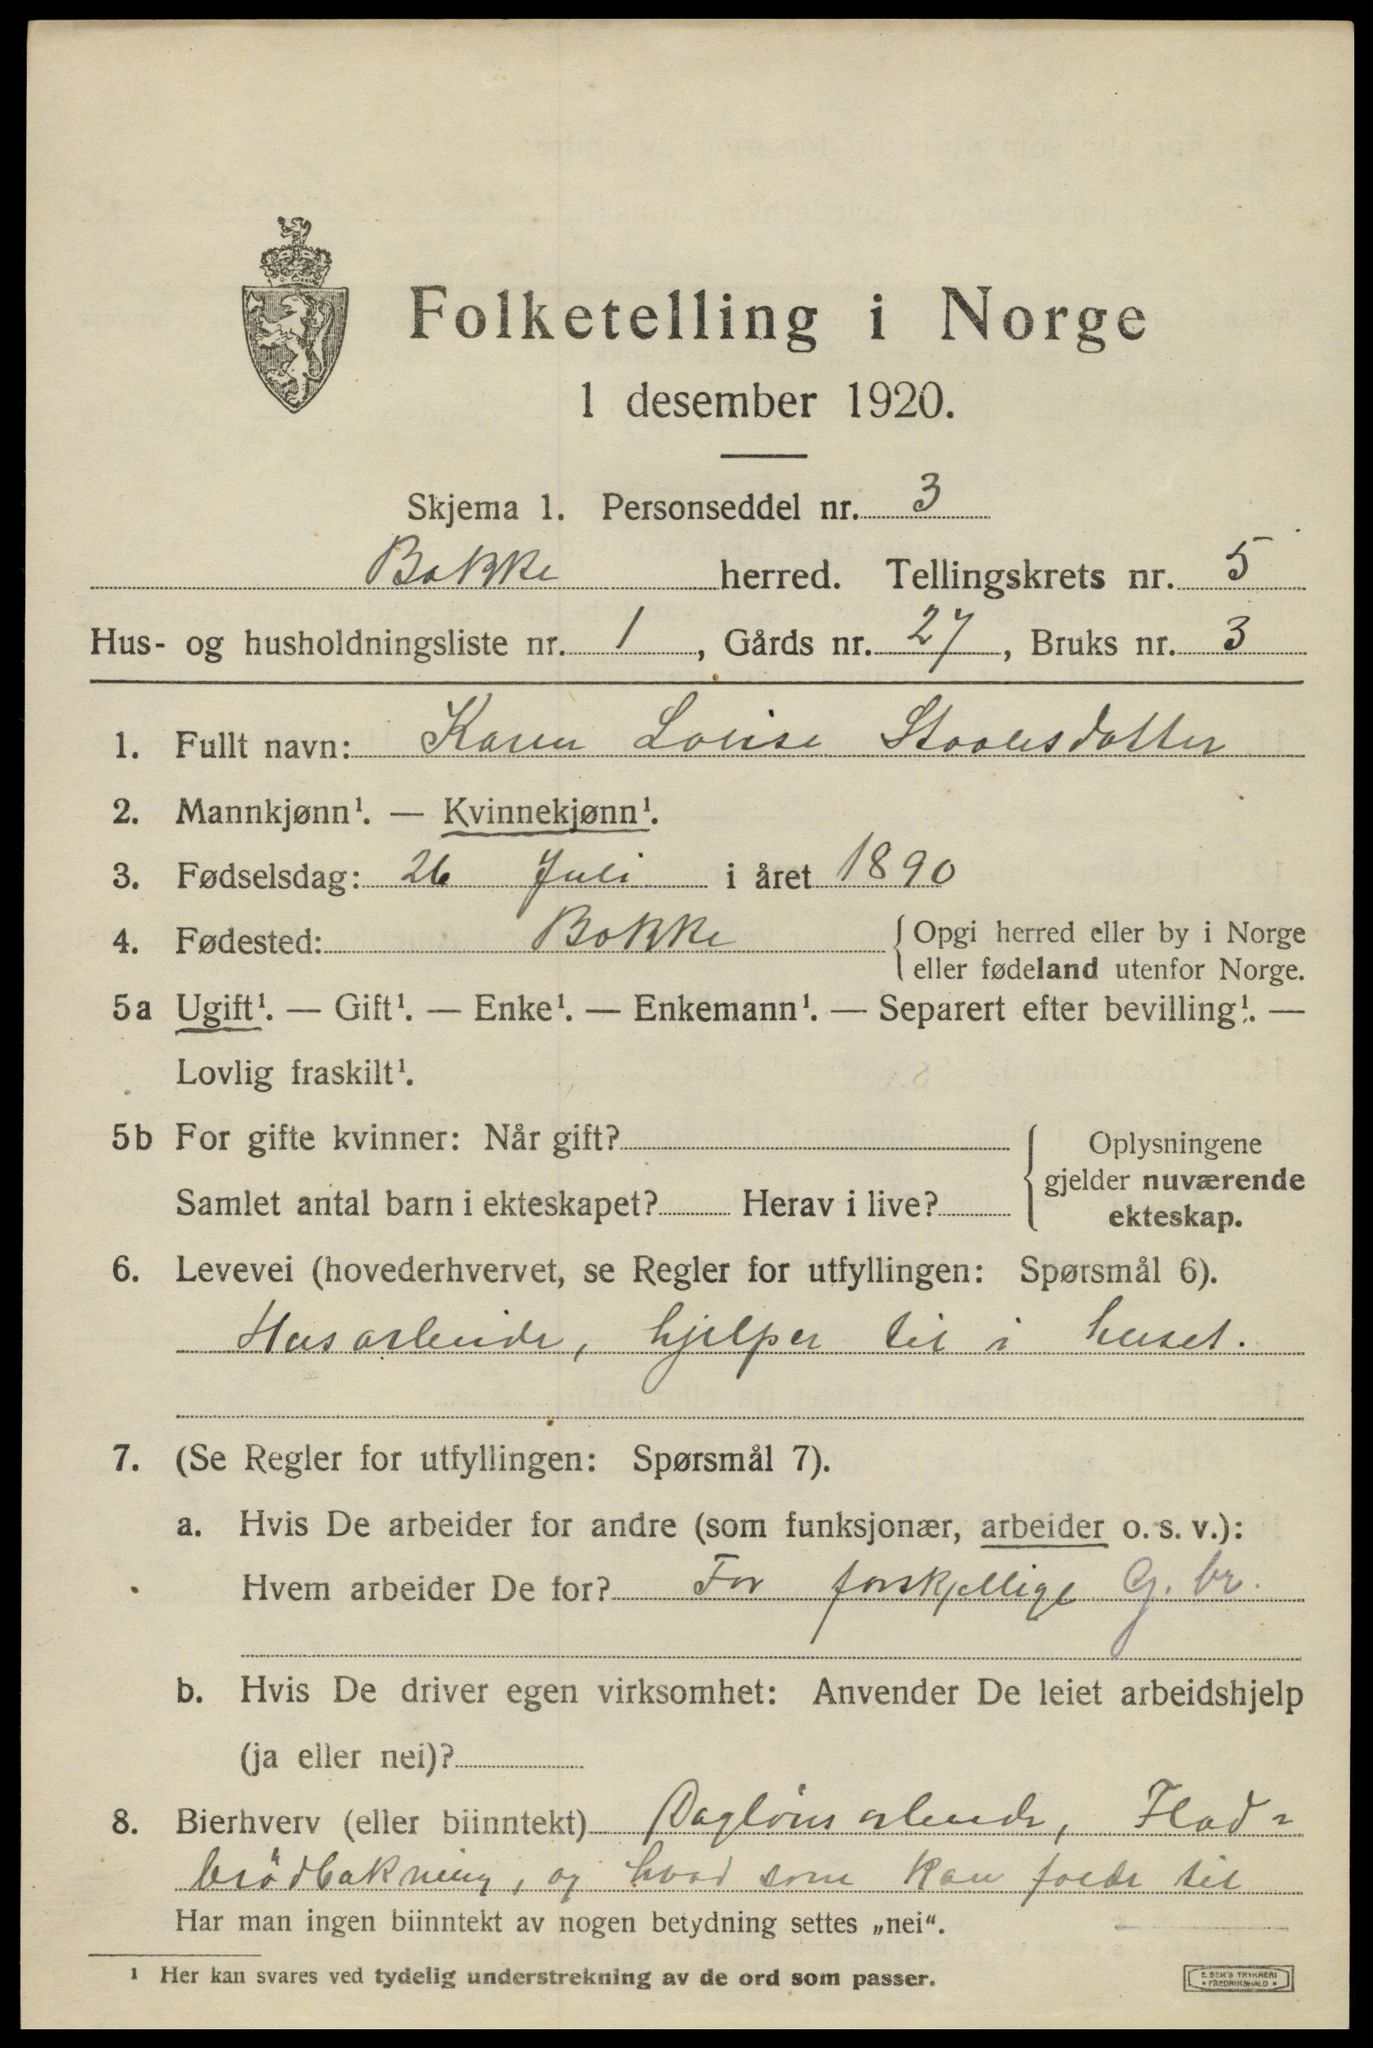 Folketelling i Norge
1 desember 1920.
Skjema 1. Personseddel nr. 3
Bakke herred. Tellingskrets nr. 5
Hus- og husholdningsliste nr. 1, Gårds nr. 27, Bruks nr. 3
1. Fullt navn: Karen Lovise Staalesdatter
2. Mannkjønn¹. — Kvinnekjønn¹.
3. Fødselsdag: 26 Juli i året 1890
4. Fødested: Bakke {Opgi herred eller by i Norge
eller fødeland utenfor Norge.
5a Ugift¹. — Gift¹. — Enke¹. — Enkemann¹. — Separert efter bevilling¹. —
Lovlig fraskilt¹.
5b For gifte kvinner: Når gift? Oplysningene
gjelder nuværende
Samlet antal barn i ekteskapet? Herav i live? ekteskap.
6. Levevei (hovederhvervet, se Regler for utfyllingen: Spørsmål 6).
Husarbeide, hjelper til i huset.
7. (Se Regler for utfyllingen: Spørsmål 7).
a. Hvis De arbeider for andre (som funksjonær, arbeider o. s. v.):
Hvem arbeider De for? For forskjellige G. br.
b. Hvis De driver egen virksomhet: Anvender De leiet arbeidshjelp
(ja eller nei)?
8. Bierhverv (eller biinntekt) Daglönsarbeide, Flad-
brödbakning, og hvad som kan falde til
Har man ingen biinntekt av nogen betydning settes „nei“.
¹ Her kan svares ved tydelig understrekning av de ord som passer.
E. SEM'S TRYKKERI
* FREDRIKSHALD *